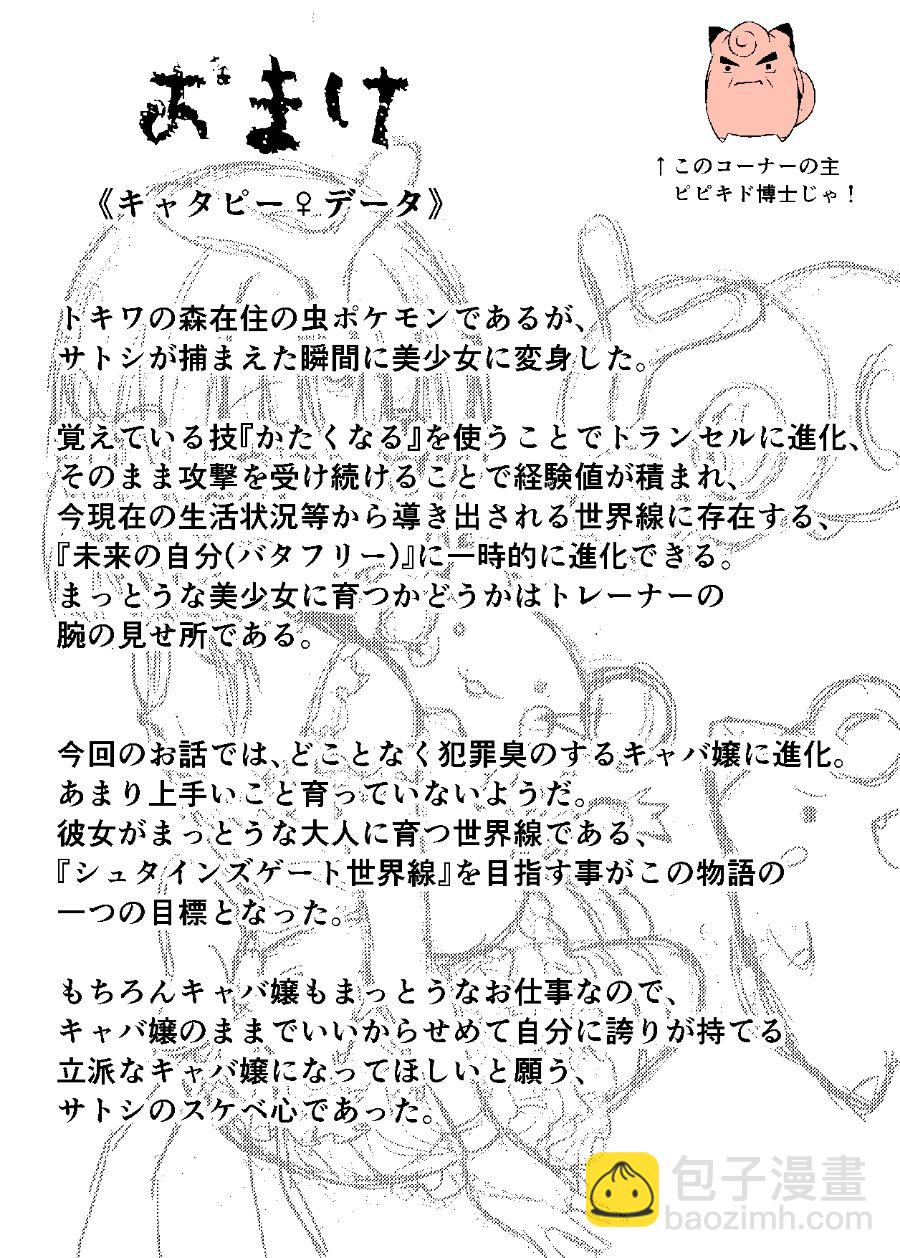 おまけ
↑このコーナーの主
ピピキド博士じゃ！
《キャタピー♀データ》
トキワの森在住の虫ポケモンであるが、
サトシが捕まえた瞬間に美少女に変身した。
覚えている技『かたくなる』を使うことでトランセルに進化、
そのまま攻撃を受け続けることで経験値が積まれ、
今現在の生活状況等から導き出される世界線に存在する、
『未来の自分(バタフリー)』に一時的に進化できる。
まっとうな美少女に育つかどうかはトレーナーの
腕の見せ所である。
今回のお話では、どことなく犯罪臭のするキャバ嬢に進化。
あまり上手いこと育っていないようだ。
彼女がまっとうな大人に育つ世界線である、
『シュタインズゲート世界線』を目指す事がこの物語の
一つの目標となった。
もちろんキャバ嬢もまっとうなお仕事なので、
キャバ嬢のままでいいからせめて自分に誇りが持てる
立派なキャバ嬢になってほしいと願う、
サトシのスケベ心であった。
包子漫畫
baozimh.com